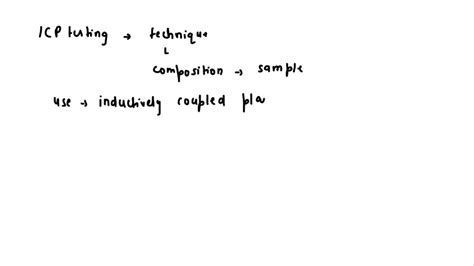 ICP testing → technique
composition → sample
use → inductively coupled pla